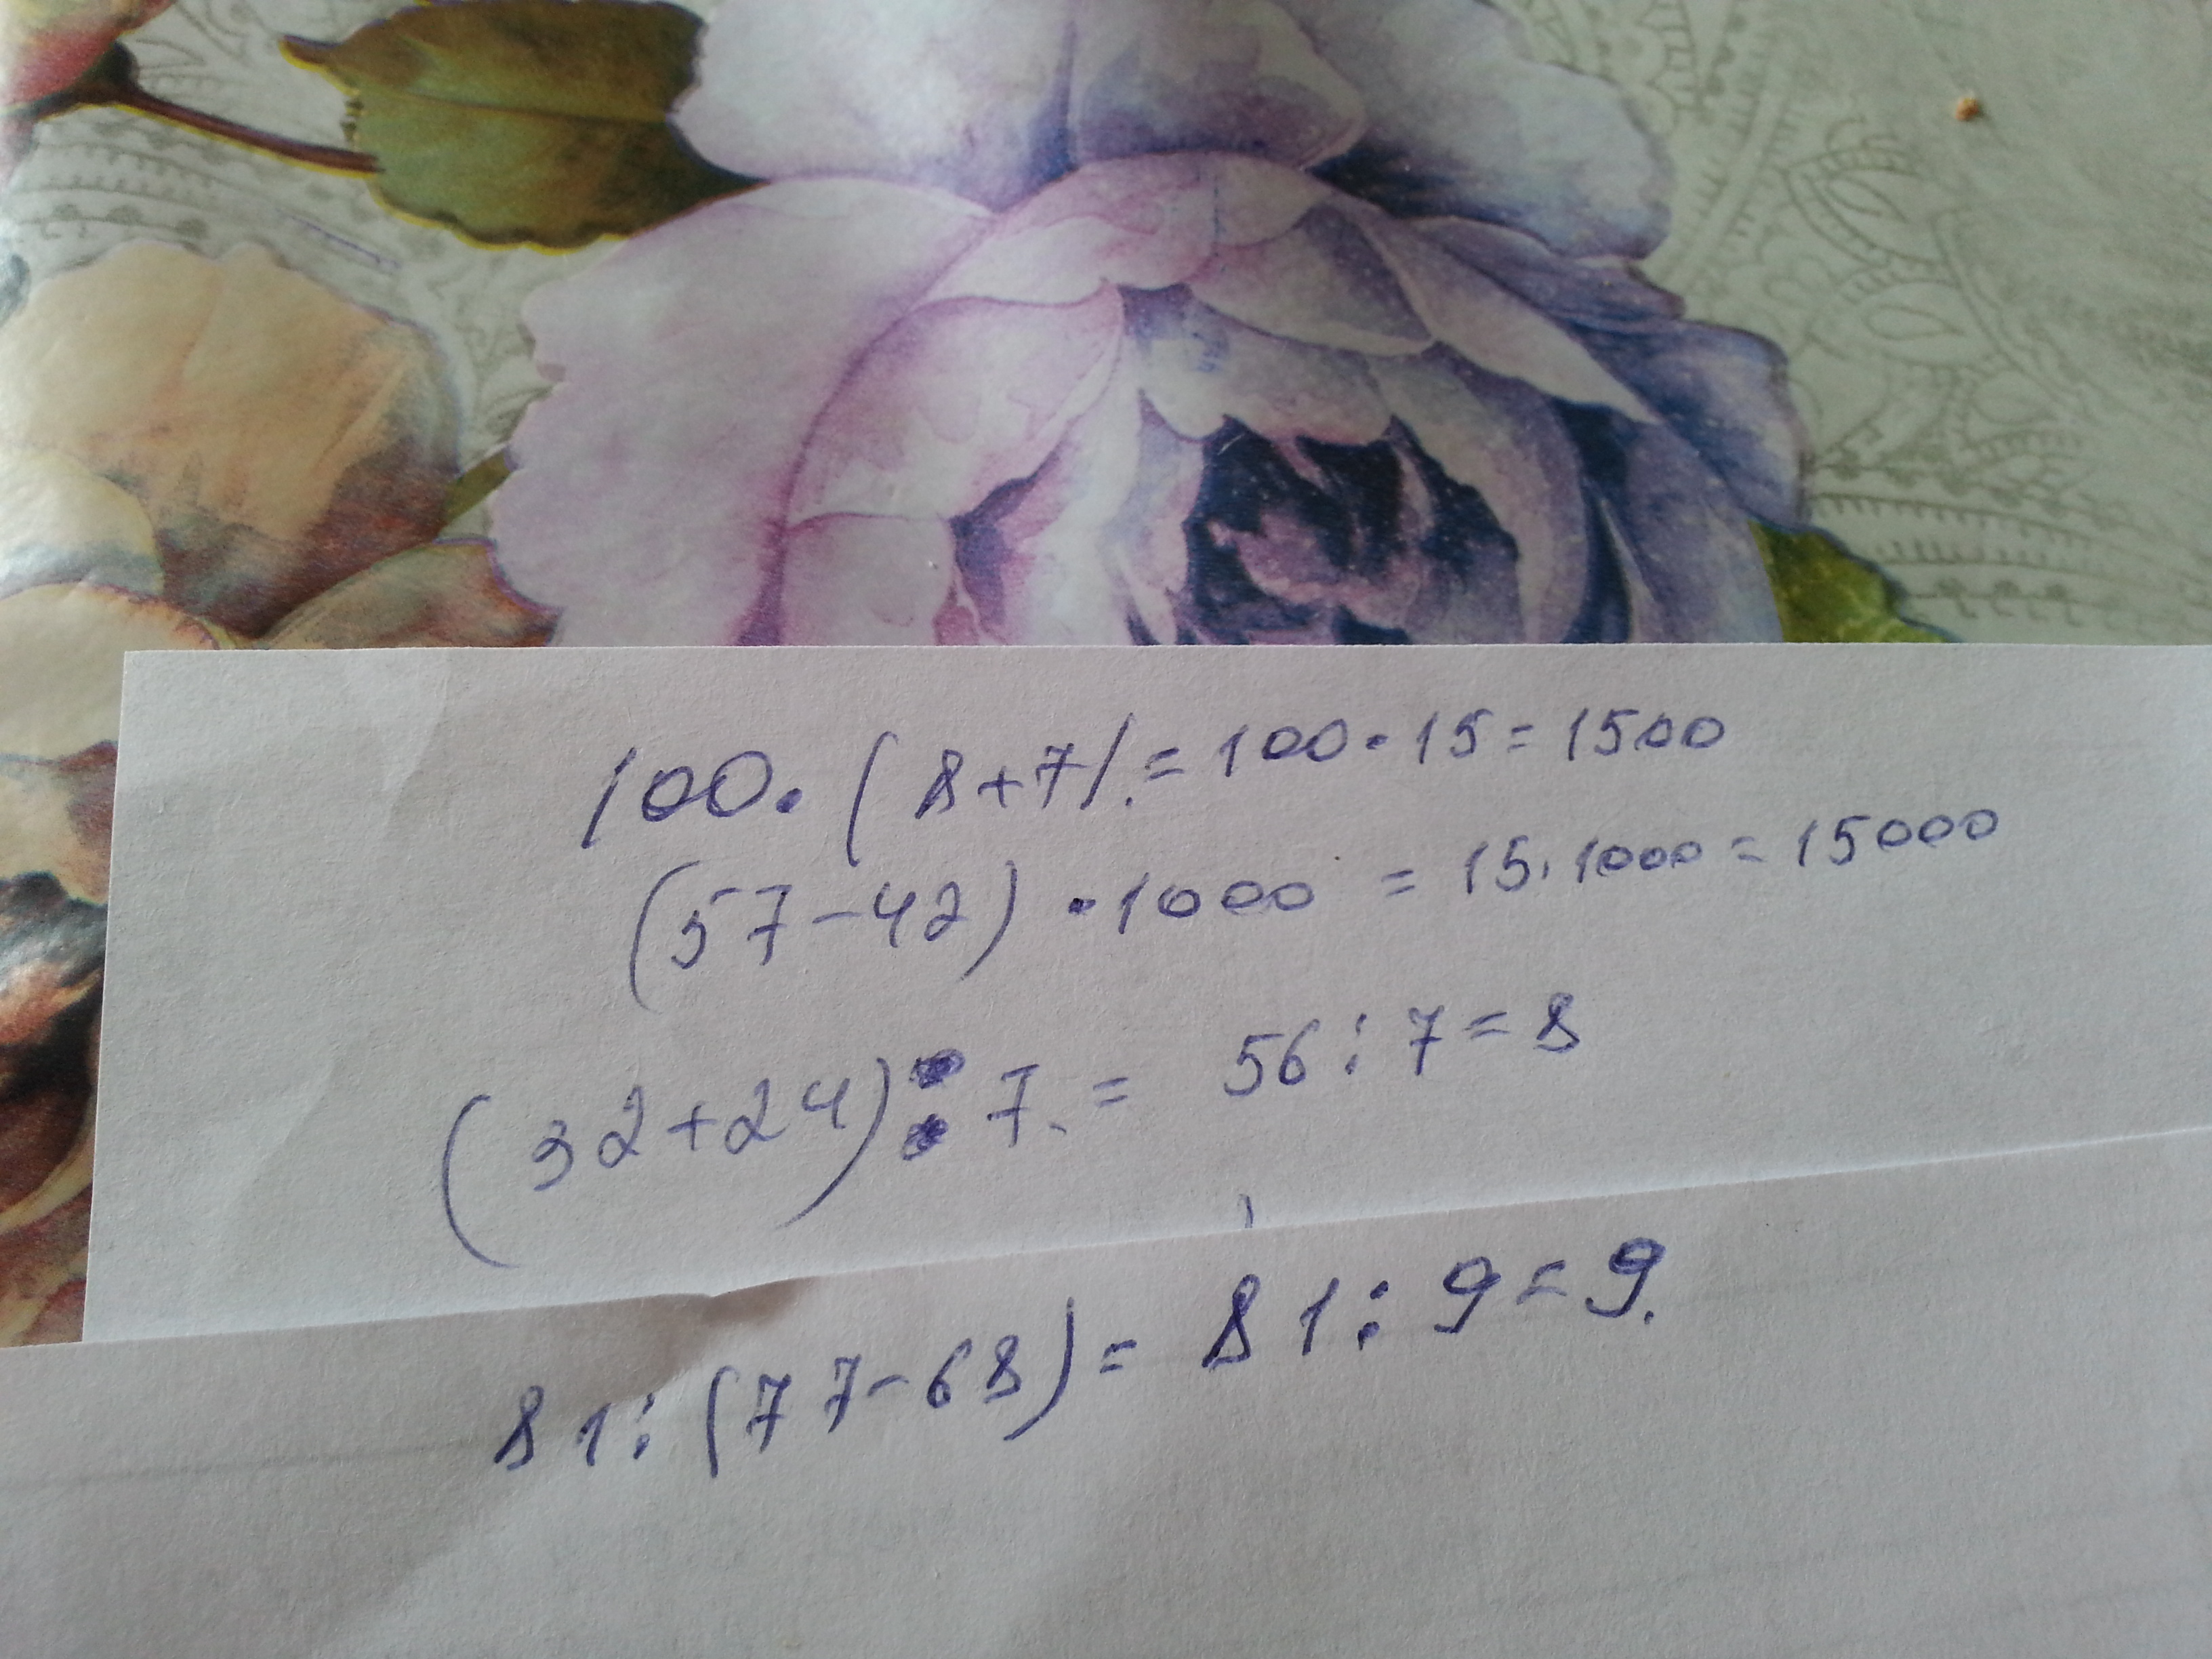 100·(8+7).=100·15=1500
(57-42)·1000=15·1000=15000
(32+24):7.=56:7=8
81:(77-68)=81:9=9.